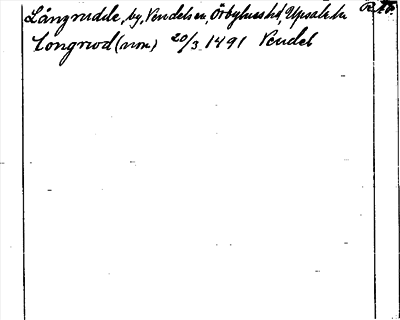 Långrudde, by, Vendels sn, Örbyhus hd, Upsala län
Longrwd (nom.) 20/3 1491 Vendel